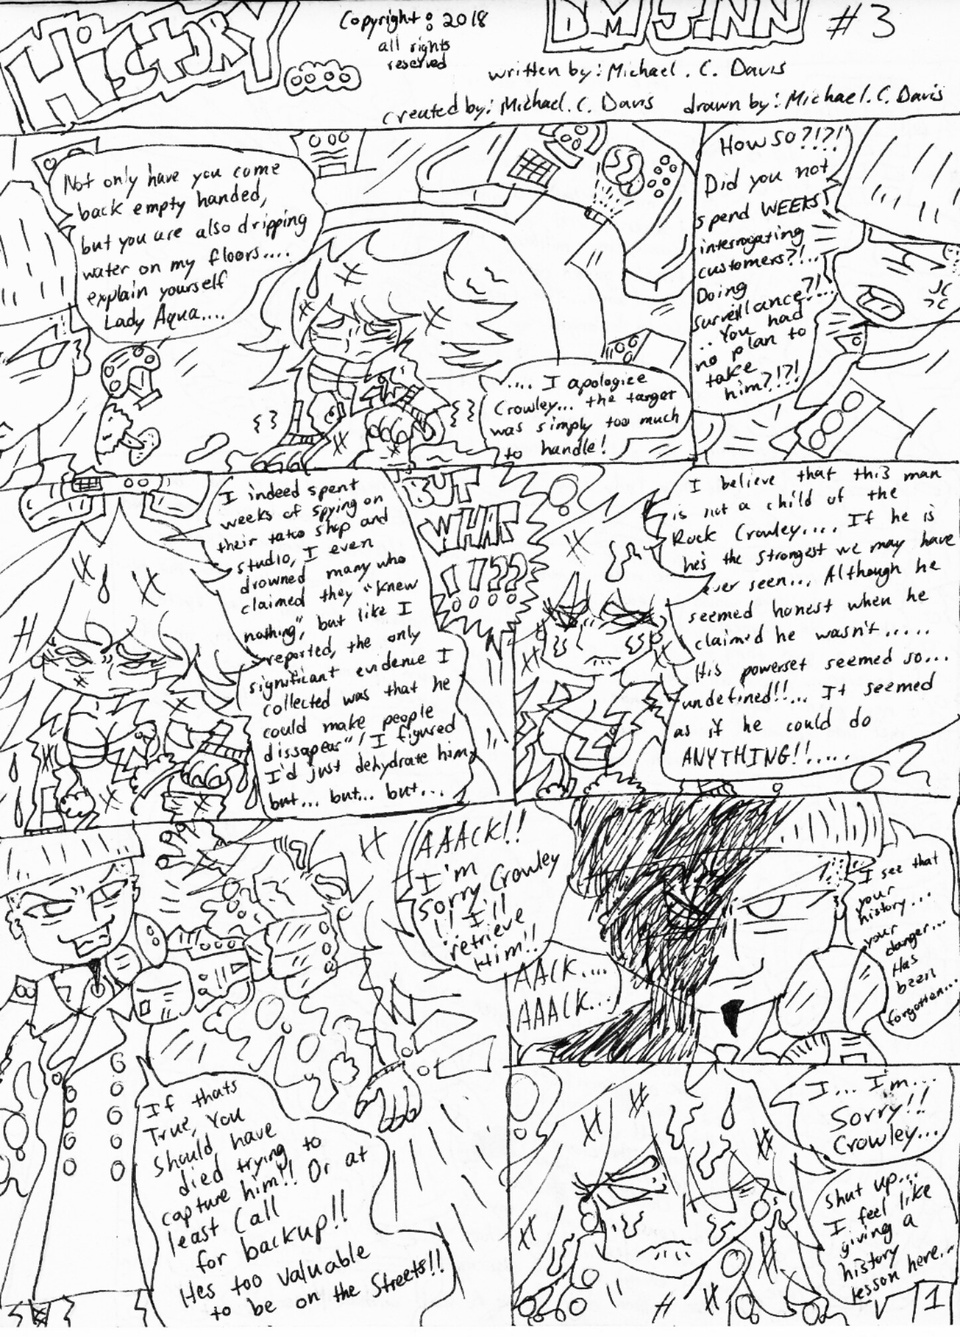 HISTORY
Copyright: 2018
all rights
reserved
DMJINN #3
written by: Michael. C. Davis
created by: Michael. C. Davis drawn by: Michael. C. Davis
Not only have you come
back empty handed,
but you are also dripping
water on my floors....
explain yourself
Lady Aqua....
.... I apologize
Crowley... the target
was simply too much
to handle!
How so?!?!!
Did you not
spend WEEKS
interrogating
customers?!...
Doing
surveillance?!...
..You had
no plan to
take
him?!?!
I indeed spent
weeks of spying on
their tatoo shop and
studio, I even
drowned many who
claimed they "knew
nothing", but like I
reported, the only
significant evidence I
collected was that he
could make people
dissapear", I figured
I'd just dehydrate him,
but... but... but...
BUT
WHAT
!???
I believe that this man
is not a child of the
Rock Crowley.... If he is
he's the strongest we may have
ever seen... Although he
seemed honest when he
claimed he wasn't.....
His powerset seemed so...
undefined!!... It seemed
as if he could do
ANYTHING!!.....
AAACK!!
I'm
sorry Crowley
!! I'll
retrieve
Him!!
If thats
True, You
should have
died trying to
capture him!! Or at
least Call
for backup!!
Hes too valuable
to be on the streets!!
AACK....
AAACK...
I see that
your
history...
your
danger...
Has
been
forgotten...
I... I'm...
Sorry!!
Crowley...
shut up...
I feel like
giving a
history
lesson here...
1